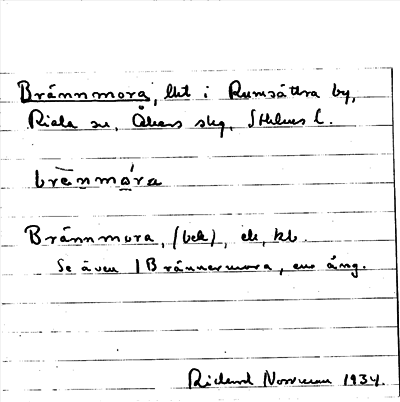 Brännmora, lht i Rumsättra by,
Riala sn, Åkers skg, Sthlms l.
brènmóra
Brännmora, (bek), ek, kb.
Se även 1 Brännermora, en äng.
Richard Norrman 1934.